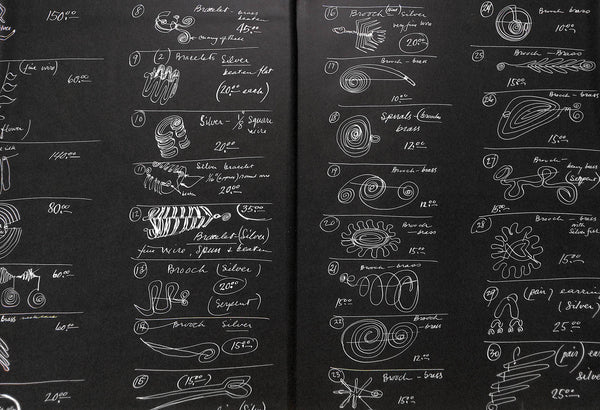 150.00
(fine wire)
60.00
flower)
140.00
80.00
60.00
Brass
60.00
20.00
8
Bracelet - brass
beaten
45.00
9
(2) Bracelets Silver
beaten flat
(20.00 each)
10
Silver - 1/8 square
wire
20.00
11
Silver bracelet
round wire
20.00
12
35.00
Bracelet (Silver)
fine wire, Spun & beaten
13
Brooch (Silver)
20.00
Serpent)
14
Brooch Silver
15.00
15
(15.00)
(Silver)
16
Brooch - Silver
very fine wire
20.00
17
Brooch - brass
10.00
18
Spirals -
brass
12.00
19
Brooch - brass
12.00
20
Brooch
brass
15.00
21
Brooch - brass
15.00
22
Brooch
- brass
12.00
23
Brooch - brass
15.00
24
brass
10.00
25
Brooch - Brass
15.00
26
Brooch - brass
15.00
27
Brooch -
heavy brass
(Serpent)
15.00
28
Brooch - brass
with
Silver
15.00
29
(pair) earrin
(Silver)
25.00
30
(pair) ea
Silver
25.